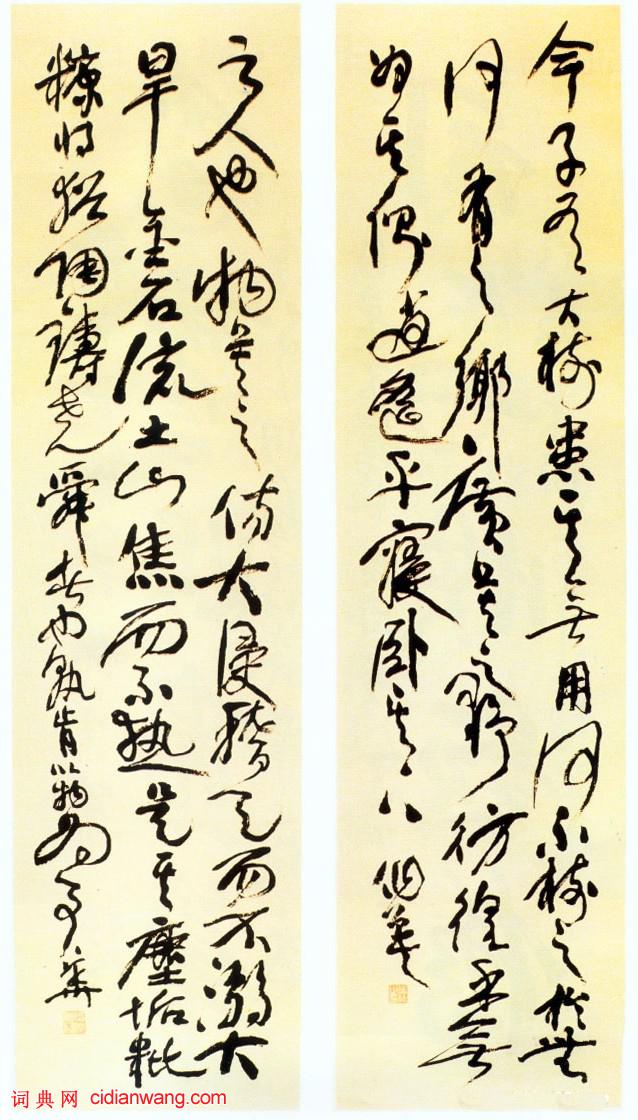 今子有大樹患其無用何不樹之於無
何有之鄉廣莫之野彷徨乎無
為其側逍遙乎寢臥其下
之人也物莫之傷大浸稽天而不溺大
旱金石流土山焦而不熱是其塵垢粃
糠將猶陶鑄堯舜者也孰肯以物為事
词典网 cidianwang.com